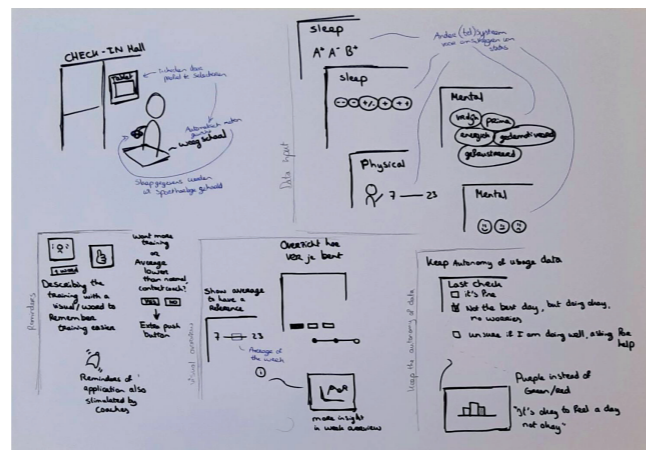 CHECK-IN Hall
Tablet
Inchecken door
profiel te selecteren
Automatisch meten
gewicht
weegschaal
Slaapgegevens worden
uit sporthorloge gehaald
Data input
sleep
A+ A- B+
Ander (tel)systeem
status
sleep
-- - +/- + ++
Mental
vredig
prima
energiek
gedemotiveerd
gefrustreerd
Physical
7 23
Mental
Reminders
1 word
Describing the
training with a
visual/word to
Remember
training easier
Want more
training
or
Average
lower
than normal
contact coach?
YES NO
Extra push
button
Reminders of
application also
stimulated by
coaches
Visual overview
Overzicht hoe
ver je bent
Show average
to have a
reference
7 23
Average of
the week
more insight
in week overview
Keep the autonomy of data
Keep Autonomy of usage data
Last check
it's fine
Not the best day, but doing okay,
no worries
unsure if I am doing well, asking for
help
Purple instead of
Green/red
"It's okay to feel a day
not okay"